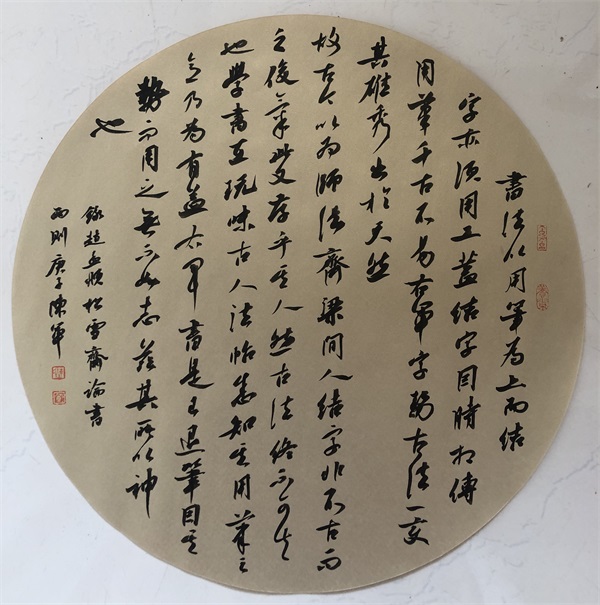 書法以用筆為上而結
字亦須用工蓋結字因時相傳
用筆千古不易右軍字勢古法一變
其雄秀出於天然
故古今以為師法齊梁間人結字非不古而
乏俊氣此又存乎其人然古法終不可失
也學書在玩味古人法帖悉知其用筆之
意乃為有益右軍書是已退筆因其
勢而用之無不如志茲其所以神
也
錄趙孟頫松雪齋論書
兩則庚子陳軍